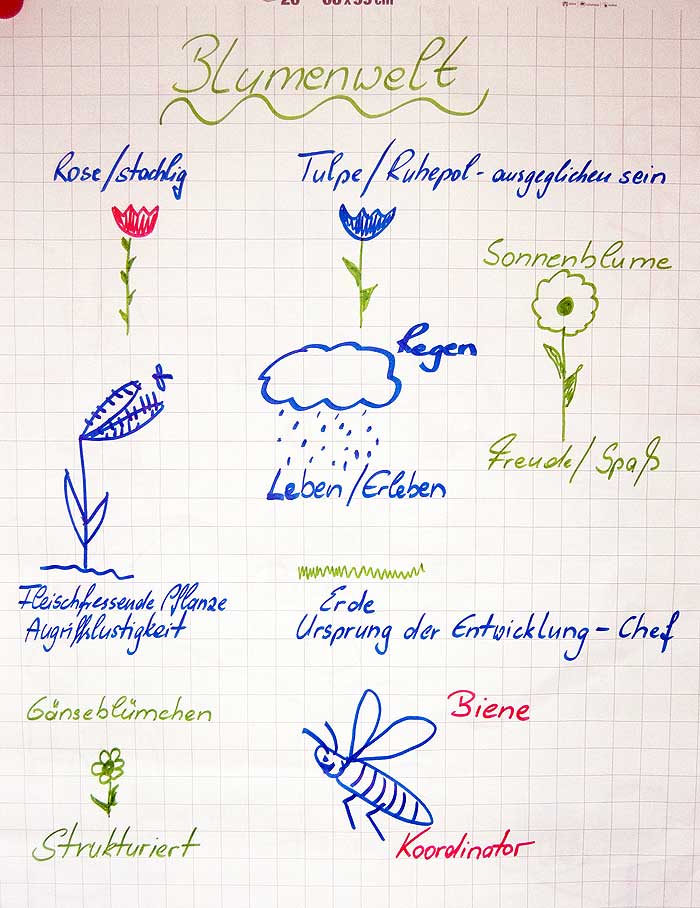 Blumenwelt
Rose/stachlig
Tulpe/Ruhepol - ausgeglichen sein
Sonnenblume
Regen
Freude/Spaß
Leben/Erleben
Fleischfressende Pflanze
Angriffslustigkeit
Erde
Ursprung der Entwicklung - Chef
Gänseblümchen
Biene
Strukturiert
Koordinator